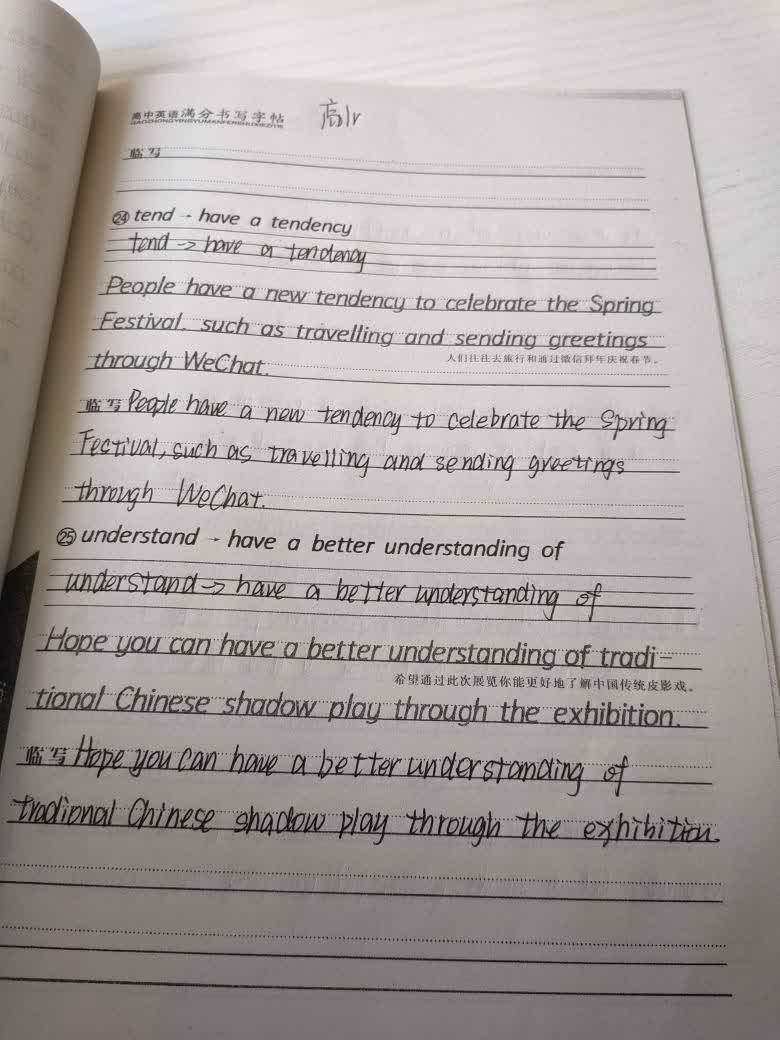 高中英语满分书写字帖
GAOZHONGYINGYUMANFENSHUXIEZITIE
临写
㉔ tend → have a tendency
tend → have a tendency
People have a new tendency to celebrate the Spring
Festival, such as travelling and sending greetings
人们往往去旅行和通过微信拜年庆祝春节。
through WeChat.
临写 People have a new tendency to celebrate the Spring
Festival, such as travelling and sending greetings
through WeChat.
㉕ understand → have a better understanding of
understand → have a better understanding of
Hope you can have a better understanding of tradi-
希望通过此次展览你能更好地了解中国传统皮影戏。
tional Chinese shadow play through the exhibition.
临写 Hope you can have a better understanding of
tradional Chinese shadow play through the exhibition.